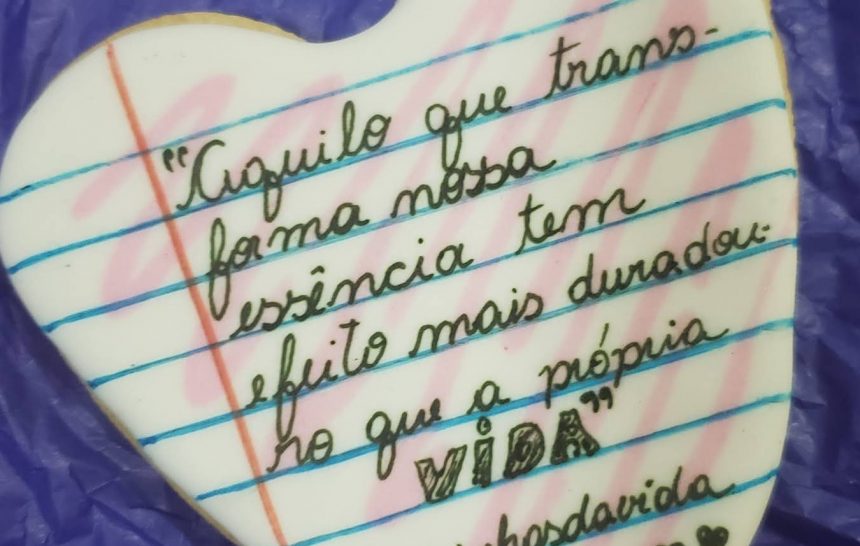 "Aquilo que trans-
forma nossa
essência tem
efeito mais duradou-
ro que a própria
VIDA"